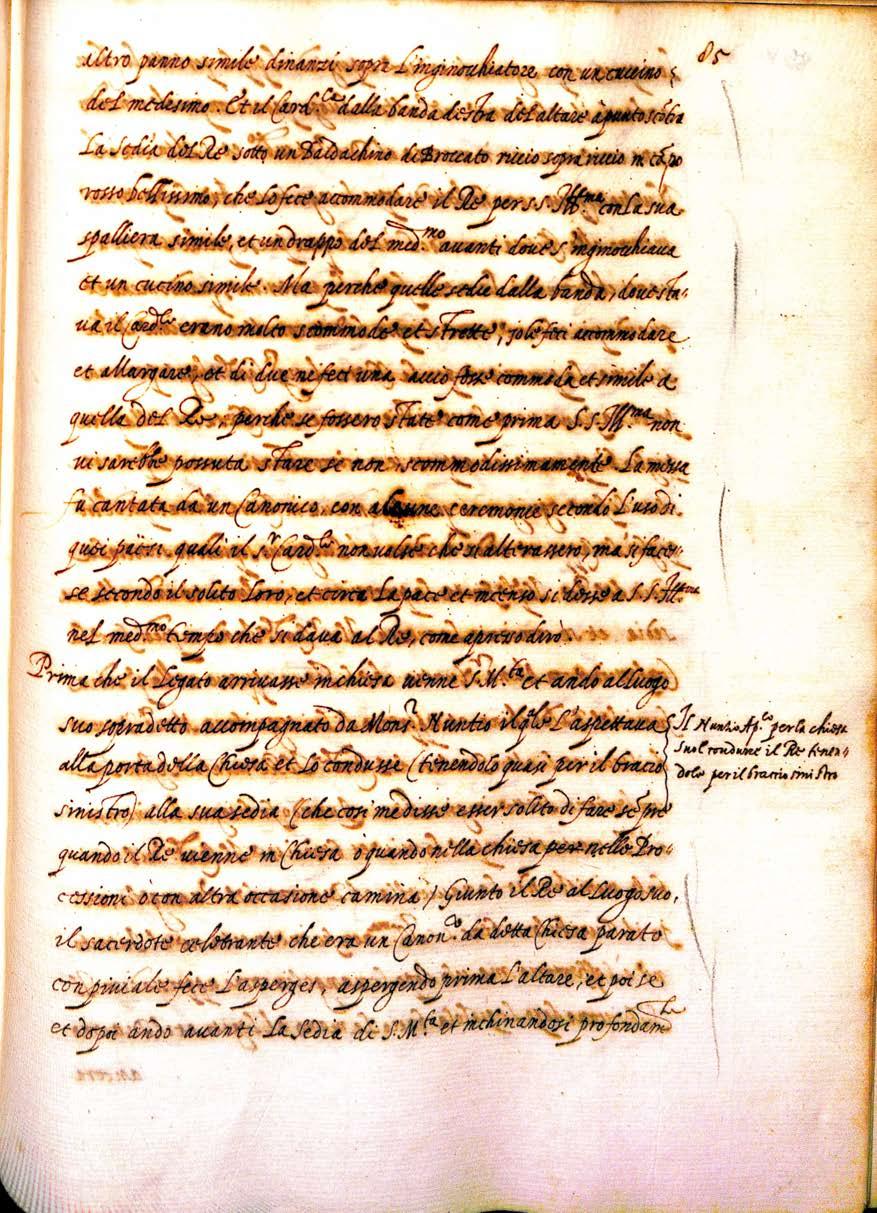 85
altro panno simile dinanzi sopra l'inginochiatore con un cuccino
del medesimo. Et il Card.le dalla banda destra del altare àpunto scõtra
la sedia del Re sotto un Baldachino di Broccato riccio sopra riccio in cãpo
rosso bellissimo, che lo fece accommodare il Re per S.S. Ill.ma con la sua
spalliera simile, et un drappo del med.mo avanti dove s'inginochiava
et un cucino simile. Ma perche quelle sedie dalla banda, dove sta-
va il Card.le erano molto scommode et strette, io le feci accommodare
et allargare, et di due ne feci una, acciò fosse commoda et simile a
quella del Re, perche se fossero state come prima S.S. Ill.ma non
vi sarebbe possuta stare se non scommodissimamente. La messa
fu cantata da un Canonico, con alcune ceremonie secondo l'uso di
quei paesi quali il S.r Card.le non volse che si alterassero, mà si faces-
se secondo il solito loro, et circa la pace et incenso si desse a S.S. Ill.ma
nel med.mo tempo che si dava al Re, come apresso dirò.
Prima che il Legato arrivasse in chiesa venne S. M.tà et andò al luogo
suo sopradetto accompagnato da Mons.r Nuntio il q̃le l'aspettava
alla porta della Chiesa et lo condusse (tenendolo quasi per il bracio
sinistro) alla sua sedia (che così me disse esser solito di fare sẽpre
quando il Re vienne in Chiesa ò quando nella chiesa per nelle Pro-
cessioni ò con altra occasione camina) Giunto il Re al luogo suo,
il sacerdote celebrante che era un Canon.co da detta Chiesa parato
con piviale fece l'asperges, aspergendo prima l'altare, et poi se
et dopoi andò avanti la sedia di S. M.tà et inchinandosi profondam.te
Il Nunzio Ap.co per la chiesa
suol condurre il Re tenen-
dolo per il braccio sinistro